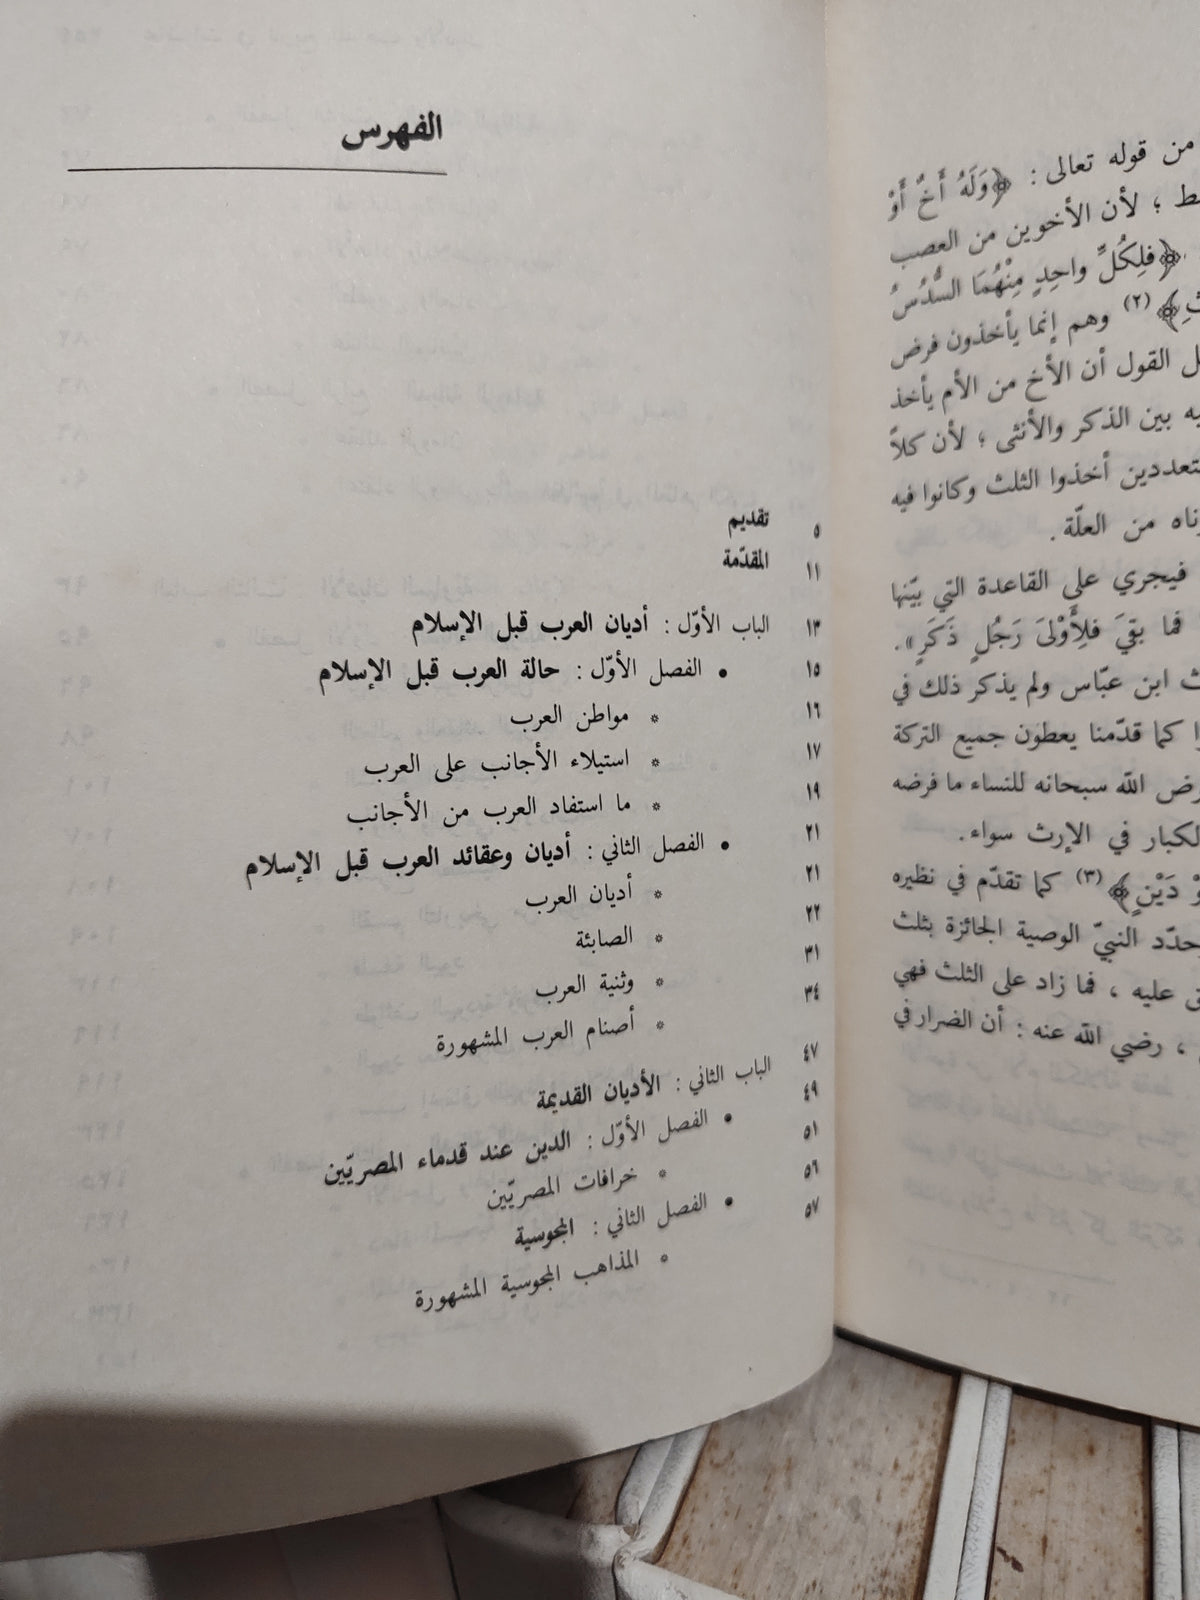 من قوله تعالى : ﴿وَلَهُ أَخٌ أَوْ
؛ لأن الأخوين من العصب
﴿فَلِكُلِّ واحِدٍ مِنْهُمَا السُّدُسُ
﴾(٢) وهم إنما يأخذون فرض
القول أن الأخ من الأم يأخذ
بين الذكر والأنثى ؛ لأن كلاً
أخذوا الثلث وكانوا فيه
من العلّة .
فيجري على القاعدة التي بيّنها
فما بقيَ فلِأَوْلىَ رَجُلٍ ذَكَرٍ».
ابن عبّاس ولم يذكر ذلك في
كما قدّمنا يعطون جميع التركة
الله سبحانه للنساء ما فرضه
في الإرث سواء.
دَيْنٍ﴾(٣) كما تقدّم في نظيره
النبيّ الوصية الجائزة بثلث
عليه ، فما زاد على الثلث فهي
، رضي الله عنه : أن الضرار في
الفهرس
تقديم ٥
المقدّمة ١١
الباب الأوّل : أديان العرب قبل الإسلام ١٣
• الفصل الأوّل : حالة العرب قبل الإسلام ١٥
* مواطن العرب ١٦
* استيلاء الأجانب على العرب ١٧
* ما استفاد العرب من الأجانب ١٩
• الفصل الثاني : أديان وعقائد العرب قبل الإسلام ٢١
* أديان العرب ٢١
* الصابئة ٢٢
* وثنية العرب ٣١
* أصنام العرب المشهورة ٣٤
الباب الثاني : الأديان القديمة ٤٧
• الفصل الأوّل : الدين عند قدماء المصريّين ٤٩
* خرافات المصريّين ٥١
• الفصل الثاني : المجوسية ٥٦
* المذاهب المجوسية المشهورة ٥٧